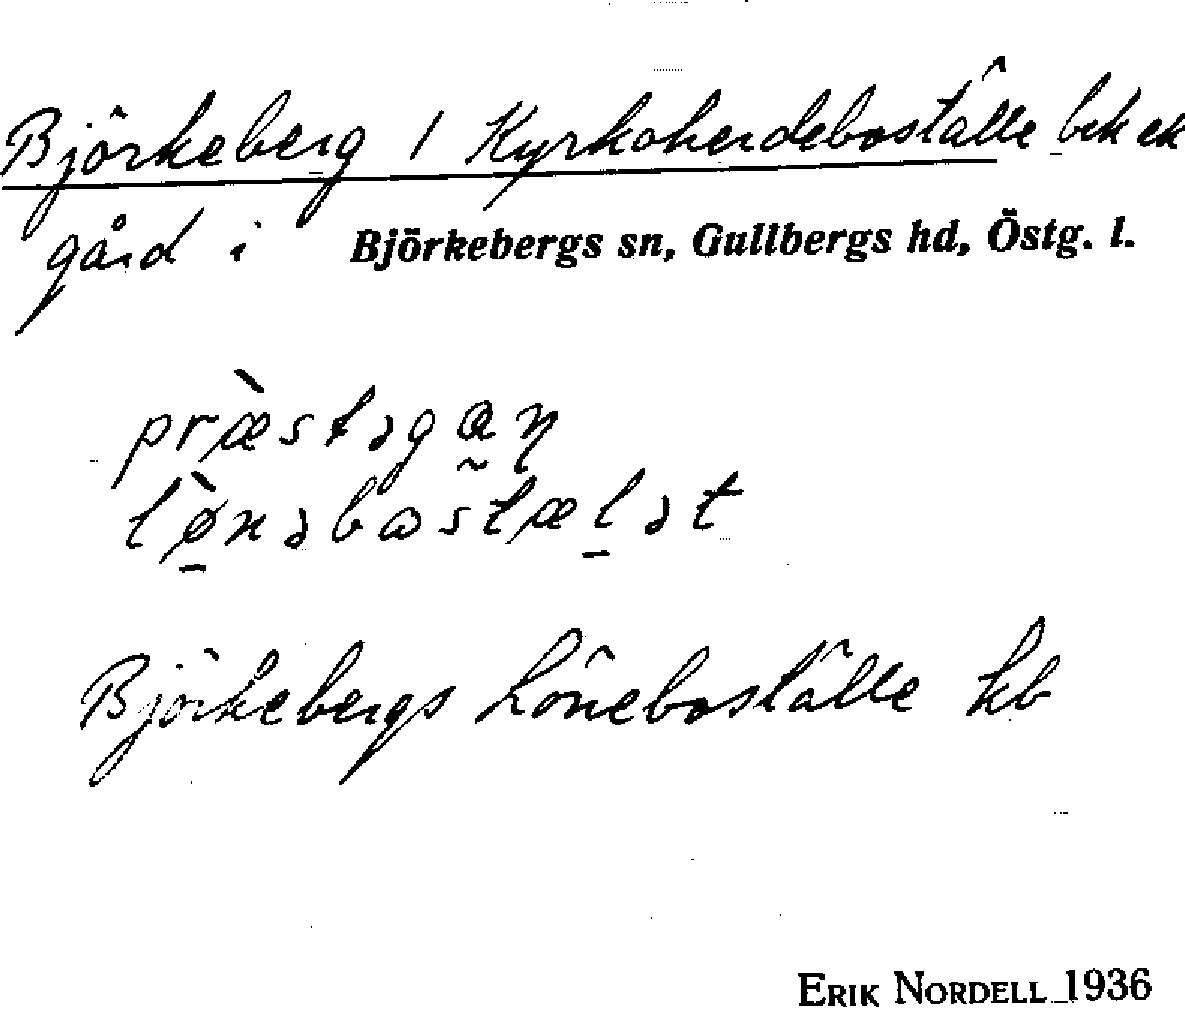 Björkeberg 1 Kyrkoherdeboställe brk ek
gård i Björkebergs sn, Gullbergs hd, Östg. l.
præ̀stəgɑṇ
lø̀nəbωstælət
Björkebergs Löneboställe kb
ERIK NORDELL 1936